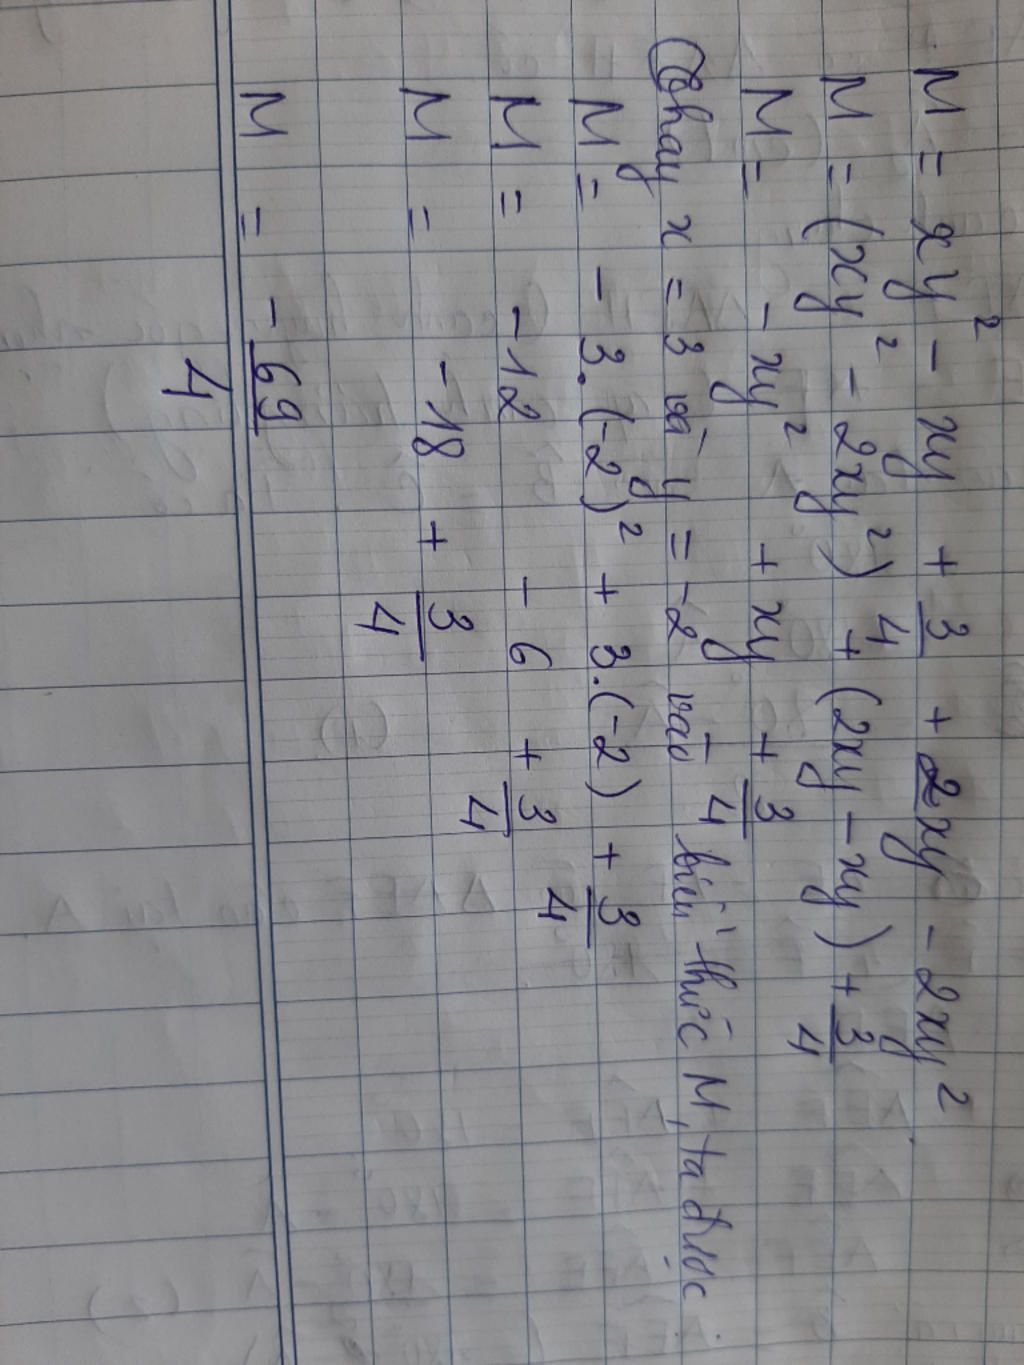 M = xy² - xy + 3/4 + 2xy - 2xy²
M = (xy² - 2xy²) + (2xy - xy) + 3/4
M = - xy² + xy + 3/4
Thay x = 3 và y = -2 vào biểu thức M, ta được
M = - 3.(-2)² + 3.(-2) + 3/4
M = -12 - 6 + 3/4
M = -18 + 3/4
M = - 69/4